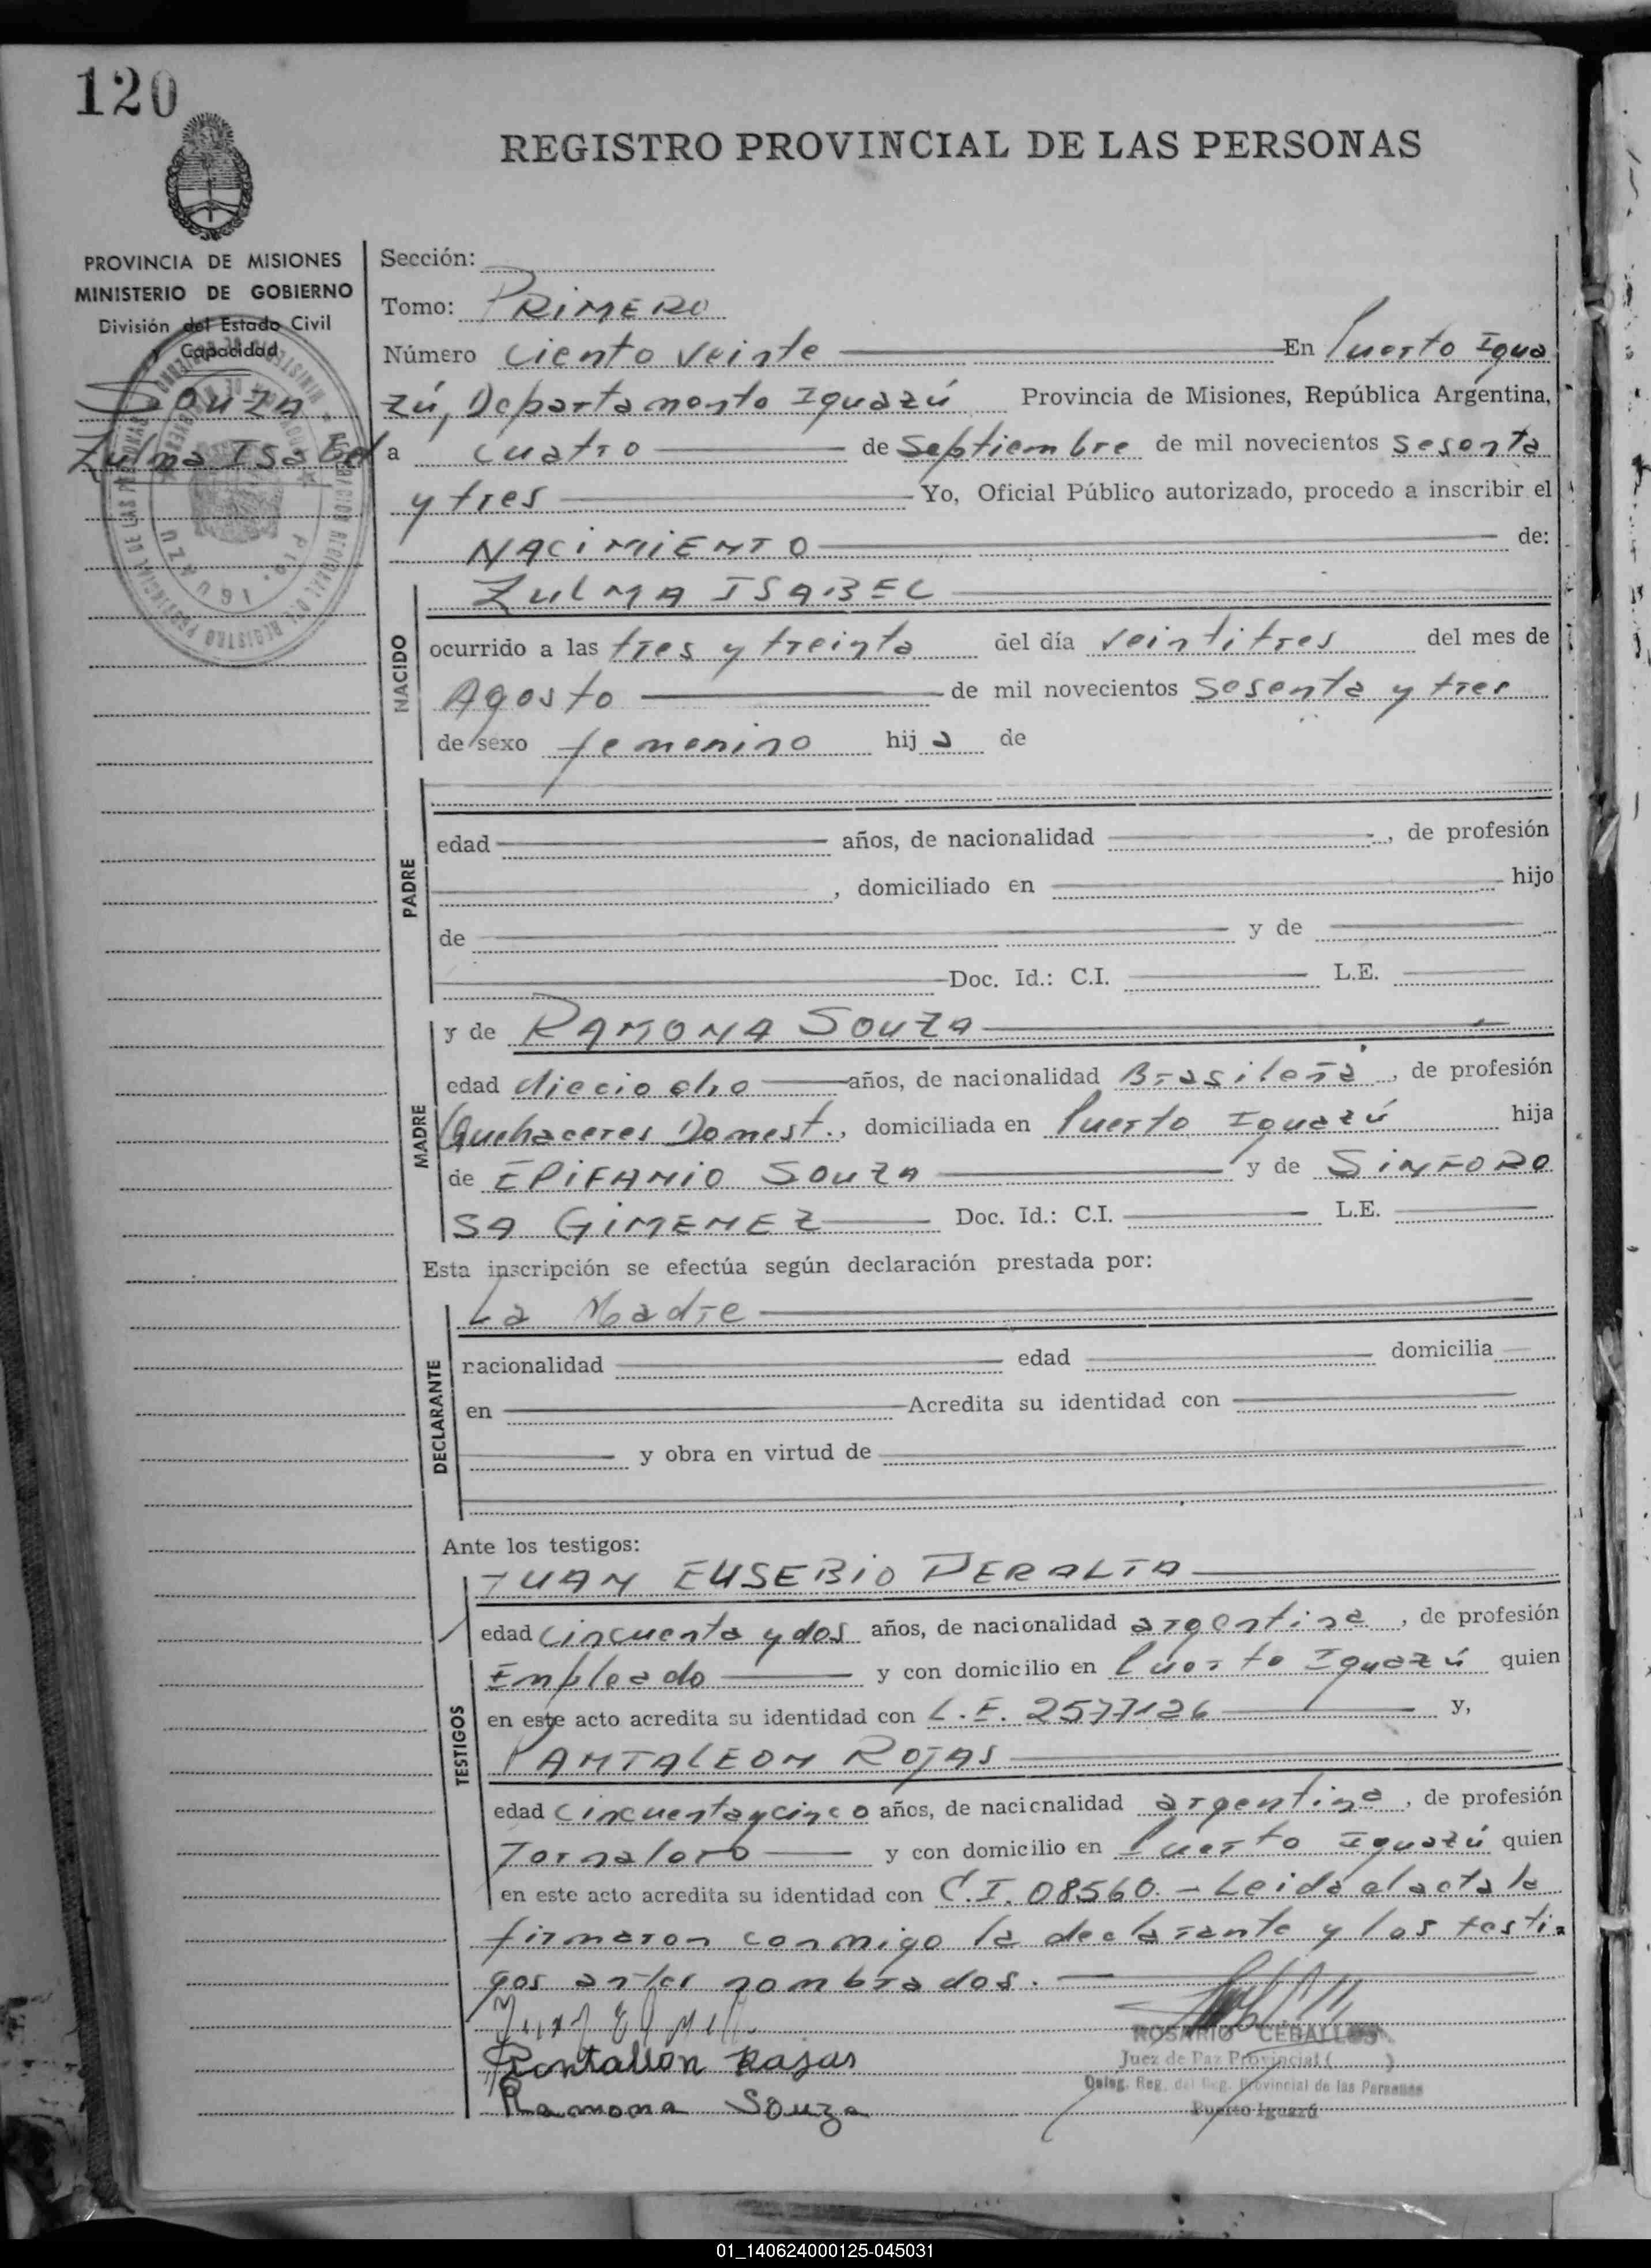 120
REGISTRO PROVINCIAL DE LAS PERSONAS
PROVINCIA DE MISIONES
MINISTERIO DE GOBIERNO
División del Estado Civil
y Capacidad
Souza
Zulma Isabel
Sección:
Tomo: PRIMERO
Número ciento veinte En Puerto Igua
zú, Departamento Iguazú Provincia de Misiones, República Argentina,
a cuatro de Septiembre de mil novecientos sesenta
y tres Yo, Oficial Público autorizado, procedo a inscribir el
NACIMIENTO de:
NACIDO
ZULMA ISABEL
ocurrido a las tres y treinta del día veintitres del mes de
Agosto de mil novecientos sesenta y tres
de sexo femenino hija de
PADRE
edad años, de nacionalidad , de profesión
, domiciliado en hijo
de y de
Doc. Id.: C.I. L.E.
MADRE
y de RAMONA SOUZA
edad dieciocho años, de nacionalidad Brasileña, de profesión
Quehaceres Domest., domiciliada en Puerto Iguazú hija
de EPIFANIO SOUZA y de SINFORO
SA GIMENEZ Doc. Id.: C.I. L.E.
Esta inscripción se efectúa según declaración prestada por:
DECLARANTE
La Madre
nacionalidad edad domicilia
en Acredita su identidad con
y obra en virtud de
Ante los testigos:
TESTIGOS
JUAN EUSEBIO PERALTA
edad cincuenta y dos años, de nacionalidad argentina, de profesión
Empleado y con domicilio en Puerto Iguazú quien
en este acto acredita su identidad con L.E. 2577126 y,
PANTALEON ROJAS
edad cincuenta y cinco años, de nacionalidad argentina, de profesión
Jornalero y con domicilio en Puerto Iguazú quien
en este acto acredita su identidad con C.I. 08560. - Leida el acta la
firmaron conmigo la declarante y los testi-
gos antes nombrados.
Pantalión Rajas
Ramona Souza
ROSARIO CEBALLOS
Juez de Paz Provincial ( )
Deleg. Reg. del Reg. Provincial de las Personas
Puerto Iguazú
01_140624000125-045031